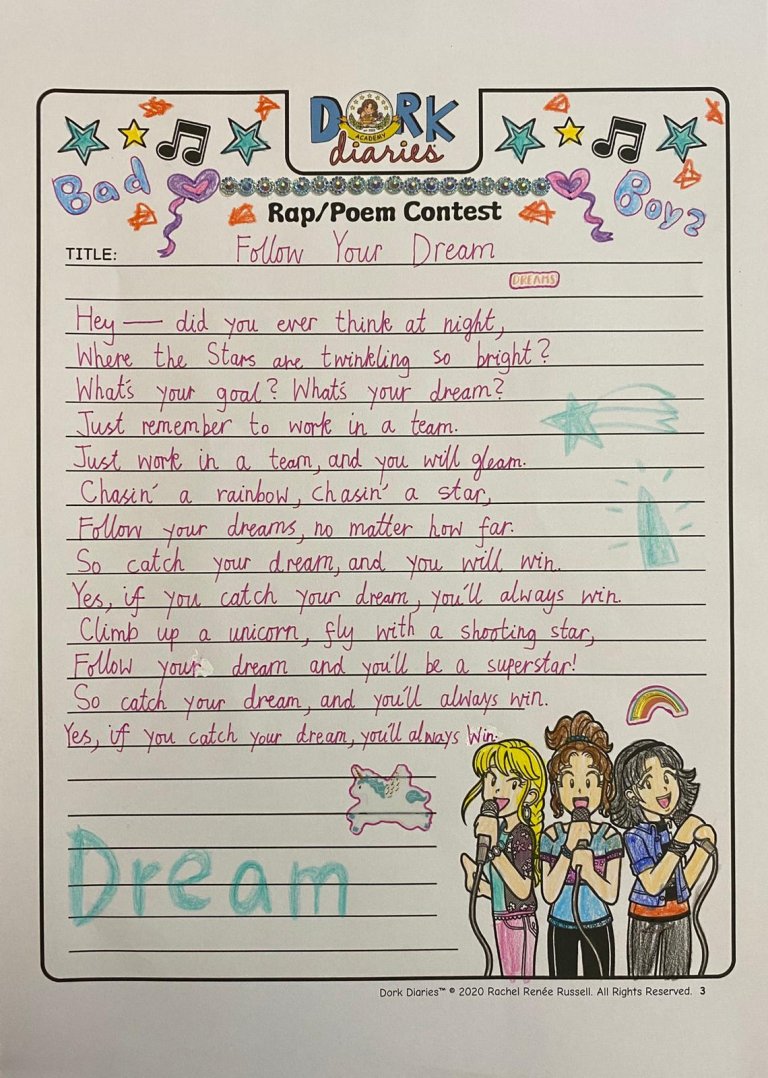 DORK
ACADEMY
diaries
Bad
Boyz
Rap/Poem Contest
TITLE: Follow Your Dream
DREAMS
Hey — did you ever think at night,
Where the Stars are twinkling so bright?
What's your goal? What's your dream?
Just remember to work in a team.
Just work in a team, and you will gleam.
Chasin' a rainbow, chasin' a star,
Follow your dreams, no matter how far.
So catch your dream, and you will win.
Yes, if you catch your dream, you'll always win.
Climb up a unicorn, fly with a shooting star,
Follow your dream and you'll be a superstar!
So catch your dream, and you'll always win.
Yes, if you catch your dream, you'll always Win.
Dream
Dork Diaries™ © 2020 Rachel Renée Russell. All Rights Reserved. 3